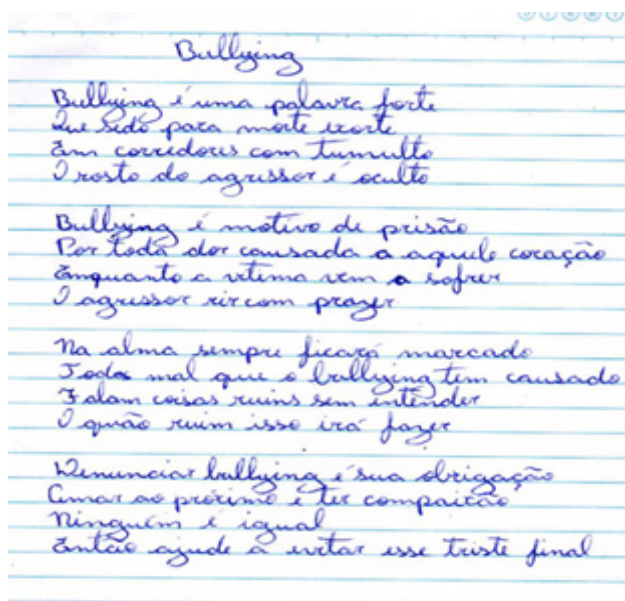 Bullying
Bullying é uma palavra forte
Que sedo para morte exorte
Em corredores com tumulto
O rosto do agressor é oculto
Bullying é motivo de prisão
Por toda dor causada a aquele coração
Emquanto a vitima vem a sofrer
O agressor rir com prazer
Na alma sempre ficará marcado
Todo mal que o bullying tem causado
Falam coisas ruins sem entender
O quão ruim isso irá fazer
Denunciar bullying é sua obrigação
Amar ao próximo e ter compaixão
Ninguém é igual
Então ajude a evitar esse triste final